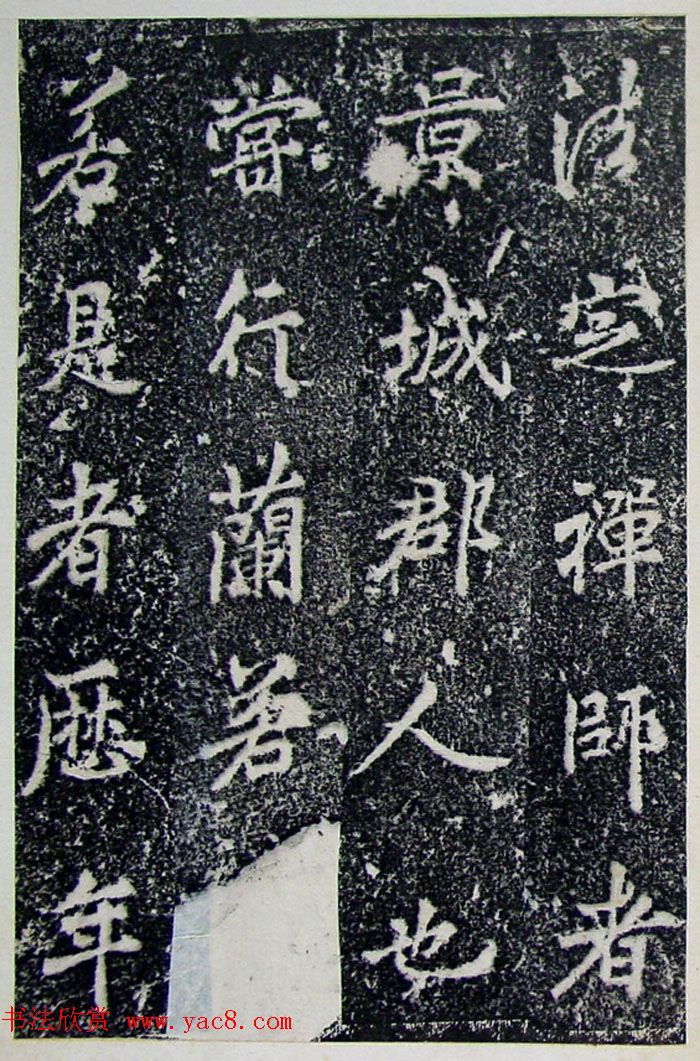 法定禪師者
景城郡人也
嘗行蘭若
若是者歷年
书法欣赏 www.yac8.com